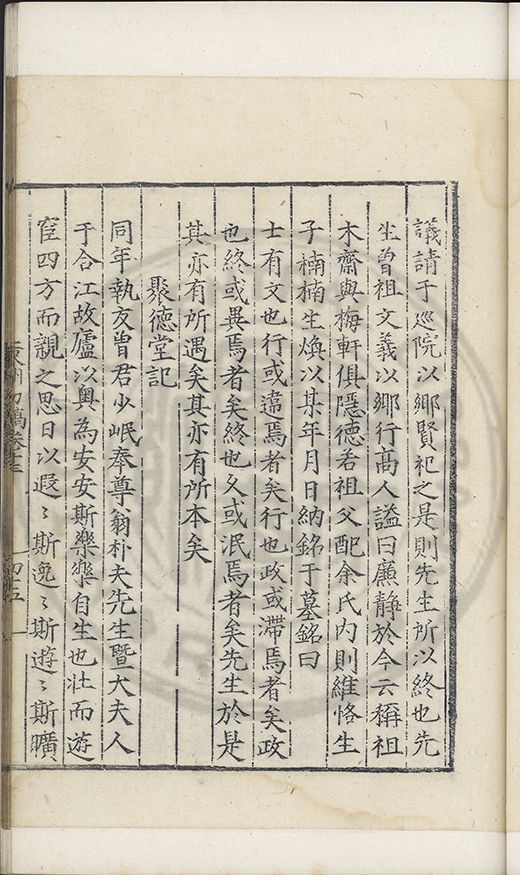 議請于廵院以鄉賢祀之是則先生所以終也先
生曽祖文義以鄉行髙人謚曰廉靜於今云稱祖
木齋與梅軒俱隱德若祖父配余氏内則維恪生
子楠楠生煥以某年月日納銘于墓銘曰
士有文也行或違焉者矣行也政或滯焉者矣政
也終或異焉者矣終也久或泯焉者矣先生於是
其亦有所遇矣其亦有所本矣
聚德堂記
同年執友曽君少岷奉尊翁朴夫先生暨大夫人
于合江故廬以輿為安安斯樂樂自生也壮而遊
宦四方而親之思日以遐〻斯逸〻斯遊〻斯曠